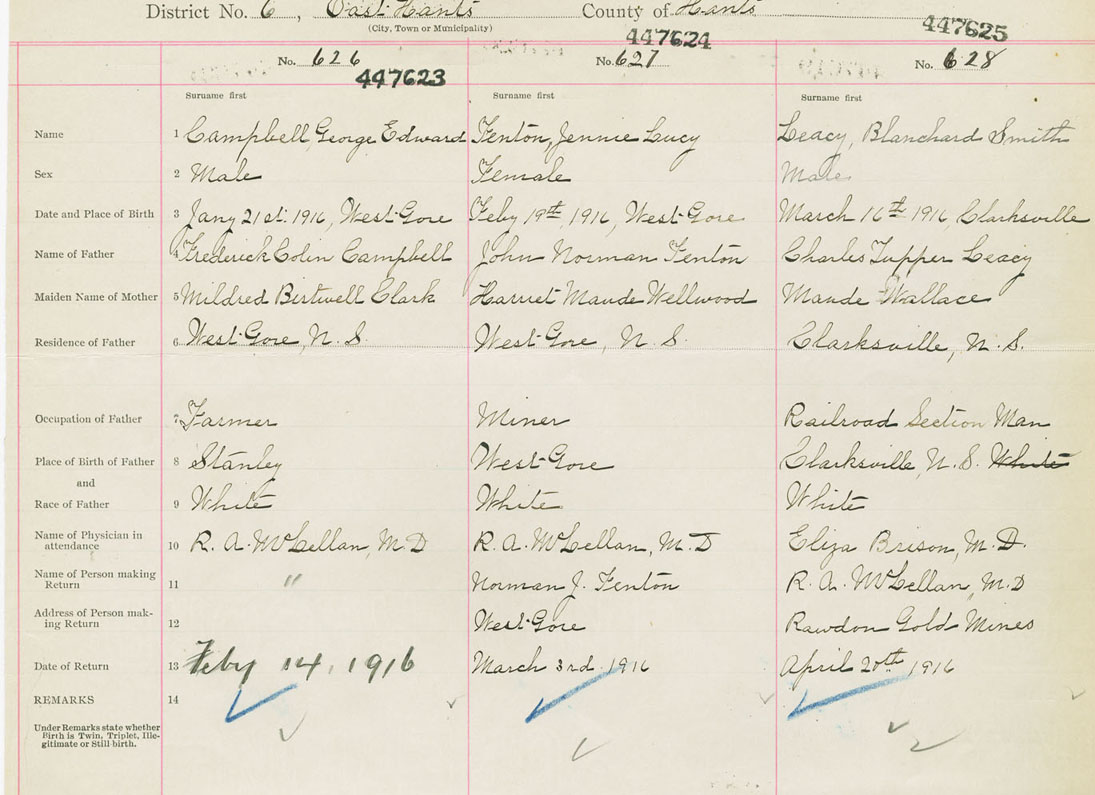 District No. 6, East Hants County of Hants
(City, Town or Municipality)
447623 447624 447625
No. 626 No. 627 No. 628
Surname first Surname first Surname first
Name 1 Campbell, George Edward Fenton, Jennie Lucy Leacy, Blanchard Smith
Sex 2 Male Female Male
Date and Place of Birth 3 Jany 21st. 1916, West Gore Feby 19th, 1916, West Gore March 16th 1916, Clarksville
Name of Father 4 Frederick Colin Campbell John Norman Fenton Charles Tupper Leacy
Maiden Name of Mother 5 Mildred Birtwell Clark Harriet Maude Wellwood Maude Wallace
Residence of Father 6 West Gore, N. S. West Gore, N. S. Clarksville, N. S.
Occupation of Father 7 Farmer Miner Railroad Section Man
Place of Birth of Father 8 Stanley West Gore Clarksville, N. S. White
and
Race of Father 9 White White White
Name of Physician in
attendance 10 R. A. McLellan, M. D R. A. McLellan, M. D Eliza Brison, M. D.
Name of Person making
Return 11 " Norman J. Fenton R. A. McLellan, M. D
Address of Person mak-
ing Return 12 West Gore Rawdon Gold Mines
Date of Return 13 Feby 14, 1916 March 3rd 1916 April 20th 1916
REMARKS 14
Under Remarks state whether
Birth is Twin, Triplet, Ille-
gitimate or Still-birth.